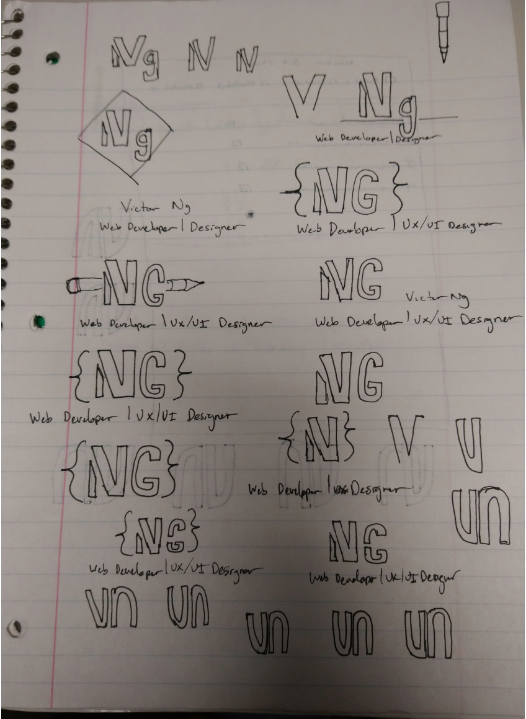 Ng N N
V Ng
Web Developer | Designer
Ng
Victor Ng
Web Developer | Designer
{NG}
Web Developer | UX/UI Designer
NG
Web Developer | UX/UI Designer
NG
Victor Ng
Web Developer | UX/UI Designer
{NG}
Web Developer | UX/UI Designer
NG
{N} V U
Web Developer | Designer
{NG}
un
{NG}
Web Developer | UX/UI Designer
NG
Web Developer | UX/UI Designer
vn un un un un